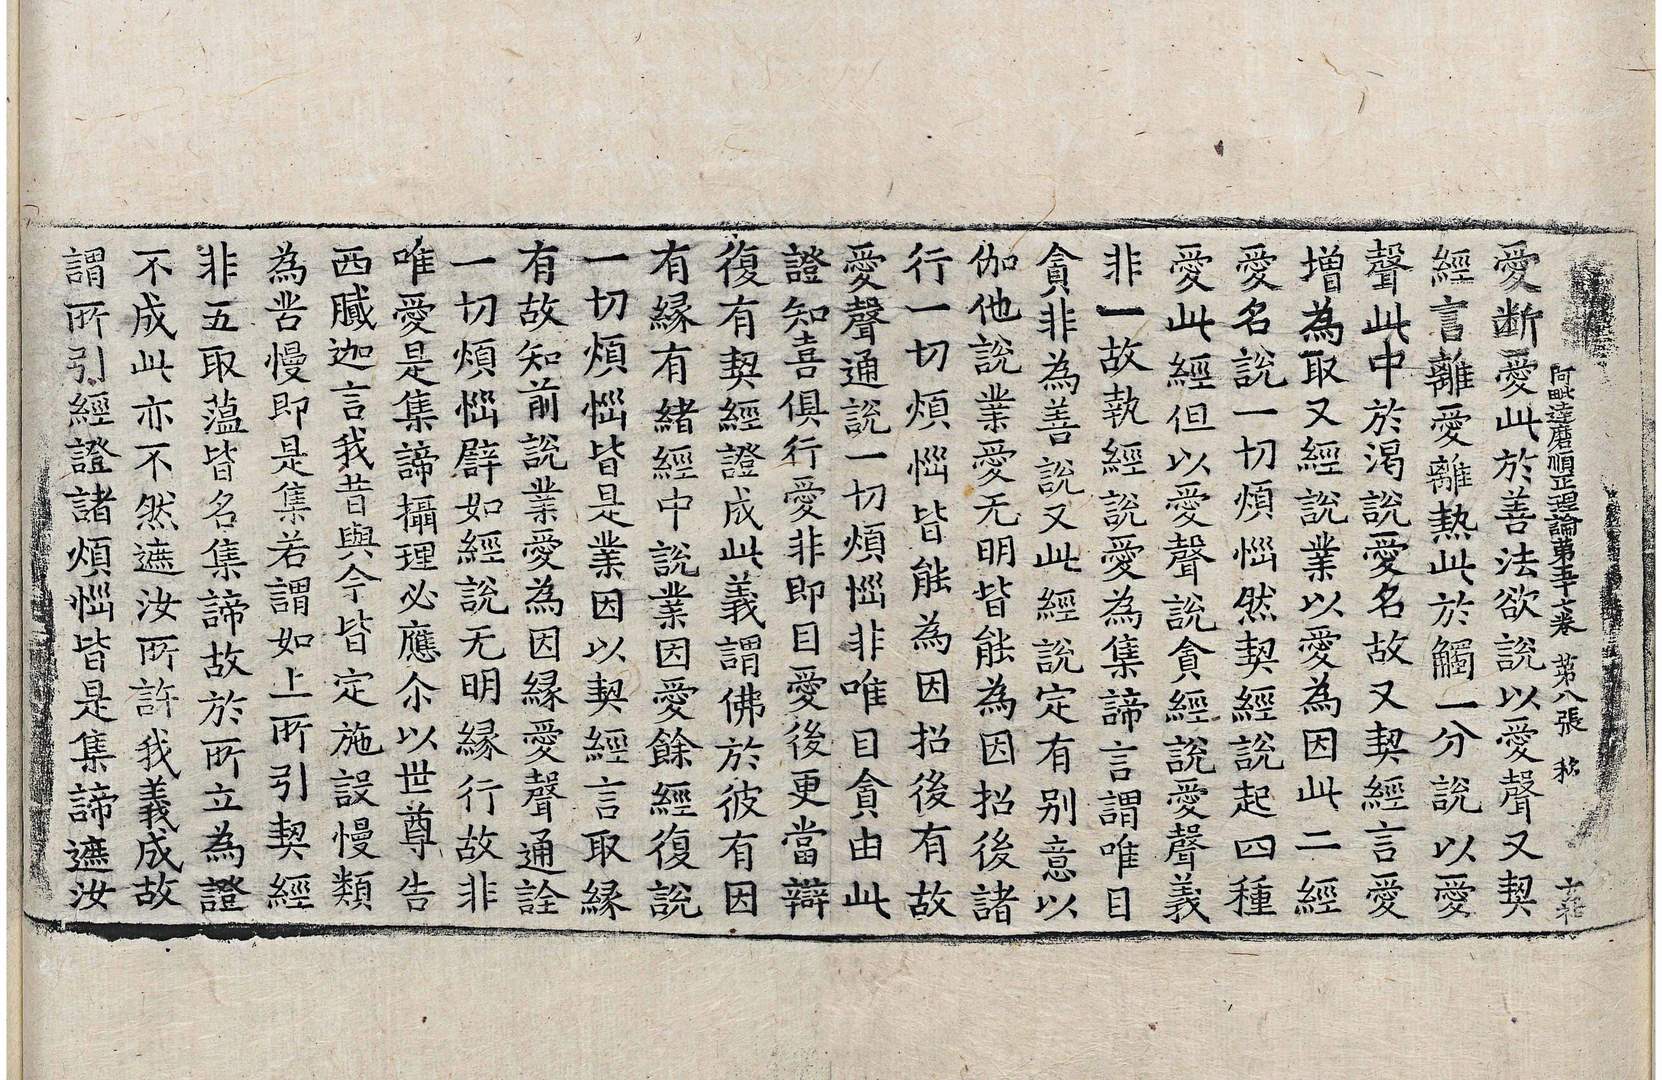 阿毗達磨順正理論第五十六卷 第八張 移
愛断愛此於善法欲說以愛聲又契
經言離愛離熱此於觸一分說以愛
聲此中於渴說愛名故又契經言愛
增為取又經說業以愛為因此二經
愛名說一切煩惱然契經說起四種
愛此經但以愛聲說貪經說愛聲義
非一故執經說愛為集諦言謂唯目
貪非為善說又此經說定有別意以
伽他說業愛无明皆能為因招後諸
行一切煩惱皆能為因招後有故
愛聲通說一切煩惱非唯目貪由此
證知喜俱行愛非即目愛後更當辯
復有契經證成此義謂佛於彼有因
有緣有緒經中說業因愛餘經復說
一切煩惱皆是業因以契經言取緣
有故知前說業愛為因緣愛聲通詮
一切煩惱譬如經說无明緣行故非
唯愛是集諦攝理必應尒以世尊告
西膩迦言我昔與今皆定施設慢類
為苦慢即是集若謂如上所引契經
非五取蕰皆名集諦故於所立為證
不成此亦不然遮汝所許我義成故
謂所引經證諸煩惱皆是集諦遮汝